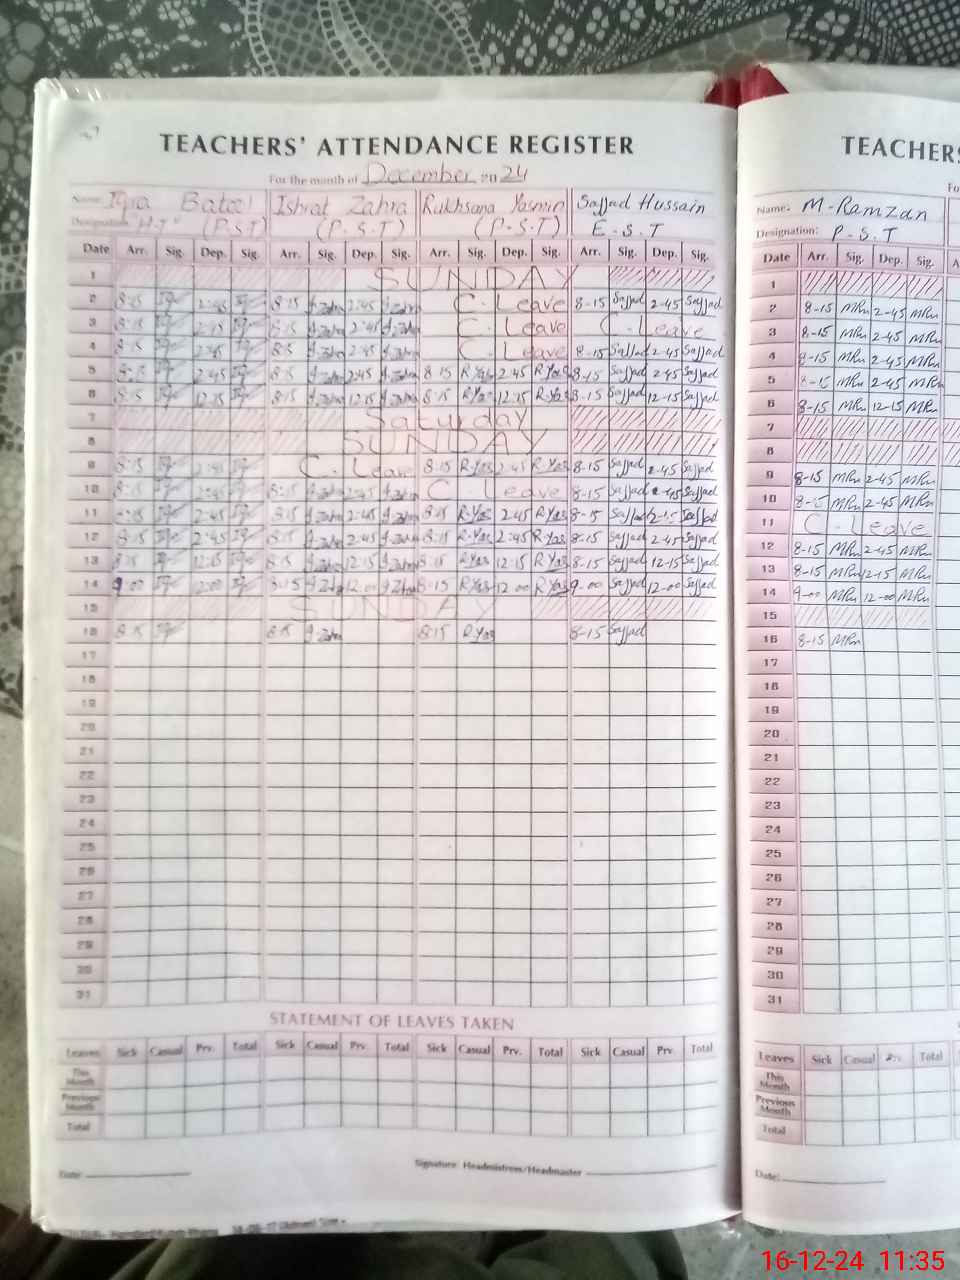 TEACHERS' ATTENDANCE REGISTER
For the month of December 2024
Name: Iqra Batool Ishrat Zahra Rukhsana Yasmin Sajjad Hussain
Designation: "H.T" (P.S.T) (P.S.T) (P.S.T) E.S.T
Date Arr. Sig. Dep. Sig. Arr. Sig. Dep. Sig. Arr. Sig. Dep. Sig. Arr. Sig. Dep. Sig.
1 SUNDAY
2 8-15 2-45 8-15 I-Zahra 2-45 I-Zahra C-Leave 8-15 Sajjad 2-45 Sajjad
3 8-15 2-45 8-15 I-Zahra 2-45 I-Zahra C-Leave C-Leave
4 8-15 2-45 8-15 I-Zahra 2-45 I-Zahra C-Leave 8-15 Sajjad 2-45 Sajjad
5 8-15 2-45 8-15 I-Zahra 2-45 I-Zahra 8-15 R-Yas 2-45 R-Yas 8-15 Sajjad 2-45 Sajjad
6 8-15 12-15 8-15 I-Zahra 12-15 I-Zahra 8-15 R-Yas 12-15 R-Yas 8-15 Sajjad 12-15 Sajjad
7 Saturday
8 SUNDAY
9 8-15 2-45 C-Leave 8-15 R-Yas 2-45 R-Yas 8-15 Sajjad 2-45 Sajjad
10 8-15 2-45 8-15 I-Zahra 2-45 I-Zahra C-Leave 8-15 Sajjad 2-45 Sajjad
11 8-15 2-45 8-15 I-Zahra 2-45 I-Zahra 8-15 R-Yas 2-45 R-Yas 8-15 Sajjad Sajjad
12 8-15 2-45 8-15 I-Zahra 2-45 I-Zahra 8-15 R-Yas 2-45 R-Yas 8-15 Sajjad 2-45 Sajjad
13 8-15 12-15 8-15 I-Zahra 12-15 I-Zahra 8-15 R-Yas 12-15 R-Yas 8-15 Sajjad 12-15 Sajjad
14 9-00 8-15 I-Zahra 12-00 I-Zahra 8-15 R-Yas 12-00 R-Yas 9-00 Sajjad 12-00 Sajjad
15 SUNDAY
16 8-15 8-15 I-Zahra 8-15 R-Yas 8-15 Sajjad
17
18
19
20
21
22
23
24
25
26
27
28
29
30
31
STATEMENT OF LEAVES TAKEN
Leaves Sick Casual Prv. Total Sick Casual Prv. Total Sick Casual Prv. Total Sick Casual Prv. Total
This Month
Previous Month
Total
Date:
Signature: Headmistress/Headmaster
TEACHERS
Fo
Name: M-Ramzan
Designation: P.S.T
Date Arr. Sig. Dep. Sig. A
1
2 8-15 MRn 2-45 MRn
3 8-15 MRn 2-45 MRn
4 8-15 MRn 2-45 MRn
5 8-15 MRn 2-45 MRn
6 8-15 MRn 12-15 MRn
7
8
9 8-15 MRn 2-45 MRn
10 8-15 MRn 2-45 MRn
11 C-Leave
12 8-15 MRn 2-45 MRn
13 8-15 MRn 12-15 MRn
14 9-00 MRn 12-00 MRn
15
16 8-15 MRn
17
18
19
20
21
22
23
24
25
26
27
28
29
30
31
Leaves Sick Casual Prv. Total
This Month
Previous Month
Total
Date:
16-12-24 11:35